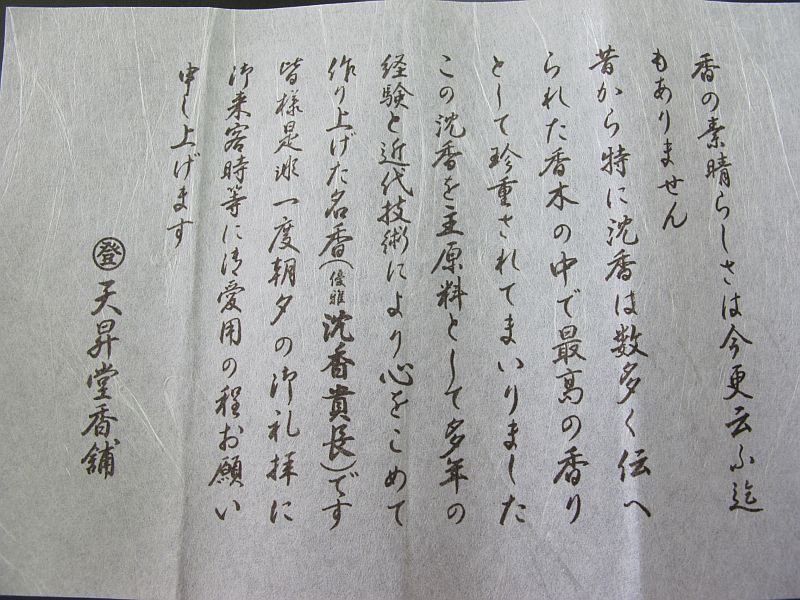 香の素晴らしさは今更云ふ迄
もありません
昔から特に沈香は数多く伝へ
られた香木の中で最高の香り
として珍重されてまいりました
この沈香を主原料として多年の
経験と近代技術により心をこめて
作り上げた名香(優雅沈香貴長)です
皆様是非一度朝夕の御礼拝に
御来客時等に御愛用の程お願い
申し上げます
登 天昇堂香舗